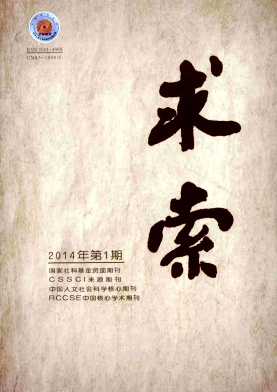 求索
2014年第1期
国家社科基金资助期刊
CSSCI来源期刊
中国人文社会科学核心期刊
RCCSE中国核心学术期刊